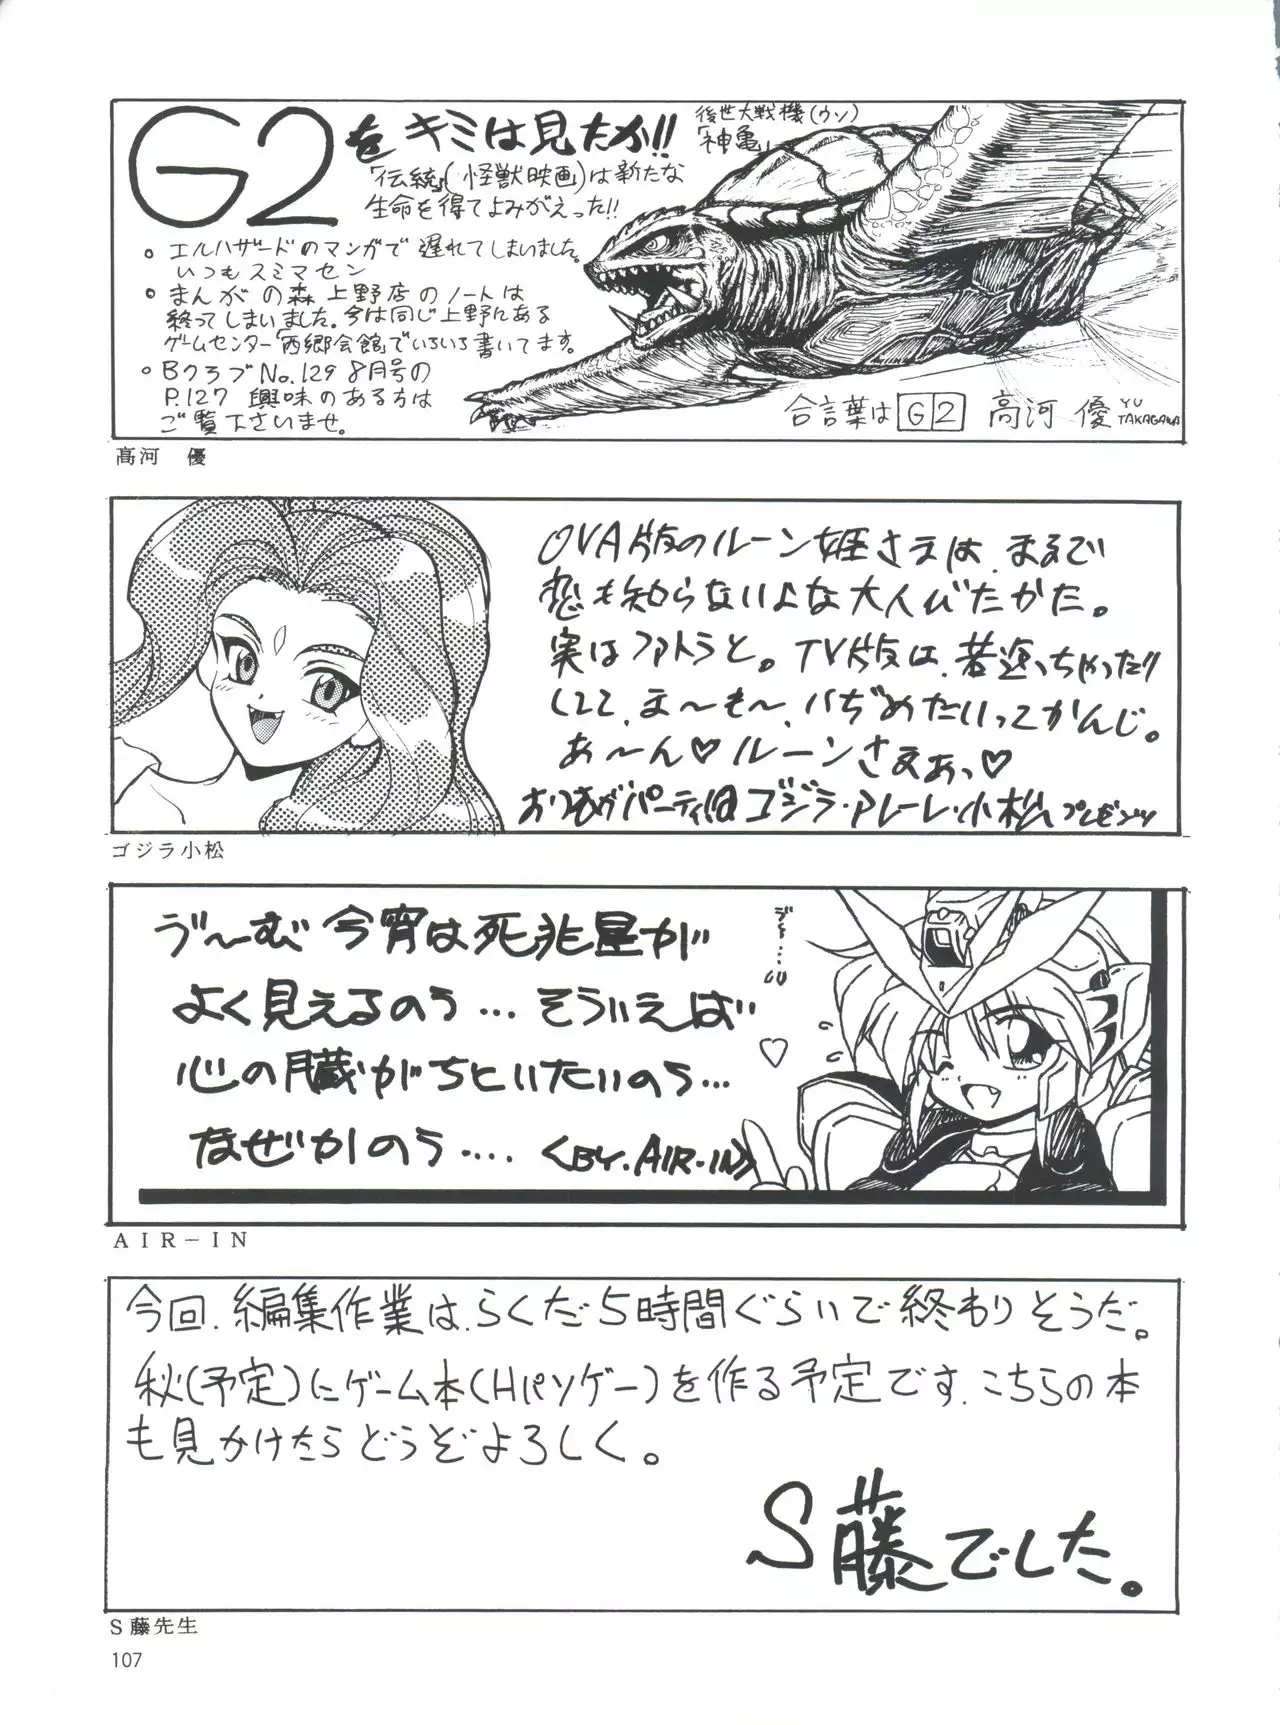 G2を キミは見たか!!
「伝統」(怪獣映画)は新たな
生命を得てよみがえった!!
後世大戦機(ウソ)
「神亀」
。エルハザードのマンガで遅れてしまいました。
いつもスミマセン
。まんがの森上野店のノートは
終ってしまいました。今は同じ上野にある
ゲームセンター「西郷会館」でいろいろ書いてます。
。BクラブNo.129 8月号の
P.127 興味のある方は
ご覧下さいませ。
合言葉は G2 高河 優 YU TAKAGAWA
高河 優
OVA版のルーン姫さまは、まるで
恋も知らないよな大人びたかた。
実はファトラと。TV版は、若返っちゃったり
しして、ま〜も〜、いぢめたいってかんじ。
あ〜ん♡ルーンさまぁっ♡
ゴジラ・Pルーレ・小松 プレゼンツ
ゴジラ小松
ヴ〜む 今宵は死兆星が
よく見えるのう… そういえば
心の臓がちといたいのう…
なぜかのう…. 《BY.AIR-IN》
AIR－IN
今回、編集作業は、らくだ5時間ぐらいで終わりそうだ。
秋(予定)にゲーム本(Hパソゲー)を作る予定です、こちらの本
も見かけたらどうぞよろしく。
S藤でした。
S藤先生
107